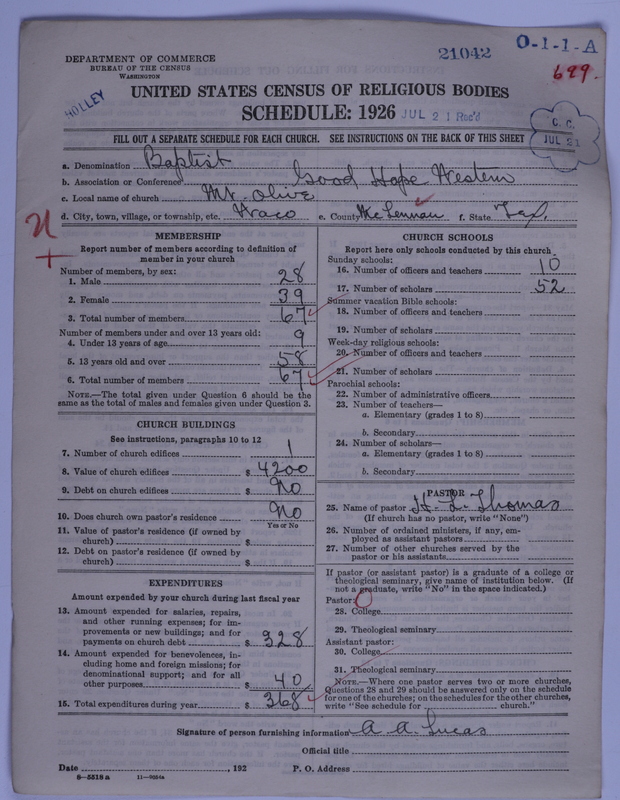 21042 O-1-1-A
699.
DEPARTMENT OF COMMERCE
BUREAU OF THE CENSUS
WASHINGTON
HOLLEY
UNITED STATES CENSUS OF RELIGIOUS BODIES
SCHEDULE: 1926 JUL 21 Rec'd
C. C. JUL 21
FILL OUT A SEPARATE SCHEDULE FOR EACH CHURCH. SEE INSTRUCTIONS ON THE BACK OF THIS SHEET
a. Denomination Baptist
b. Association or Conference Good Hope Western
c. Local name of church Mt. Olive
d. City, town, village, or township, etc. Waco e. County McLennan f. State Tex.
MEMBERSHIP
Report number of members according to definition of
member in your church
Number of members, by sex:
1. Male 28
2. Female 39
3. Total number of members 67
Number of members under and over 13 years old:
4. Under 13 years of age 9
5. 13 years old and over 58
6. Total number of members 67
NOTE.—The total given under Question 6 should be the
same as the total of males and females given under Question 3.
CHURCH BUILDINGS
See instructions, paragraphs 10 to 12
7. Number of church edifices 1
8. Value of church edifices $ 4200
9. Debt on church edifices $ No
10. Does church own pastor's residence No
Yes or No
11. Value of pastor's residence (if owned by
church) $
12. Debt on pastor's residence (if owned by
church) $
EXPENDITURES
Amount expended by your church during last fiscal year
13. Amount expended for salaries, repairs,
and other running expenses; for im-
provements or new buildings; and for
payments on church debt $ 328
14. Amount expended for benevolences, in-
cluding home and foreign missions; for
denominational support; and for all
other purposes $ 40
15. Total expenditures during year $ 368
CHURCH SCHOOLS
Report here only schools conducted by this church
Sunday schools:
16. Number of officers and teachers 10
17. Number of scholars 52
Summer vacation Bible schools:
18. Number of officers and teachers
19. Number of scholars
Week-day religious schools:
20. Number of officers and teachers
21. Number of scholars
Parochial schools:
22. Number of administrative officers
23. Number of teachers—
a. Elementary (grades 1 to 8)
b. Secondary
24. Number of scholars—
a. Elementary (grades 1 to 8)
b. Secondary
PASTOR
25. Name of pastor H. L. Thomas
(If church has no pastor, write "None")
26. Number of ordained ministers, if any, em-
ployed as assistant pastors
27. Number of other churches served by the
pastor or his assistants
If pastor (or assistant pastor) is a graduate of a college or
theological seminary, give name of institution below. (If
not a graduate, write "No" in the space indicated.)
Pastor: 0
28. College
29. Theological seminary
Assistant pastor:
30. College
31. Theological seminary
NOTE.—Where one pastor serves two or more churches,
Questions 28 and 29 should be answered only on the schedule
for one of the churches; on the schedules for the other churches,
write "See schedule for church."
Signature of person furnishing information A. A. Lucas
Official title
Date , 192 P. O. Address
8—5518 a 11—9034a